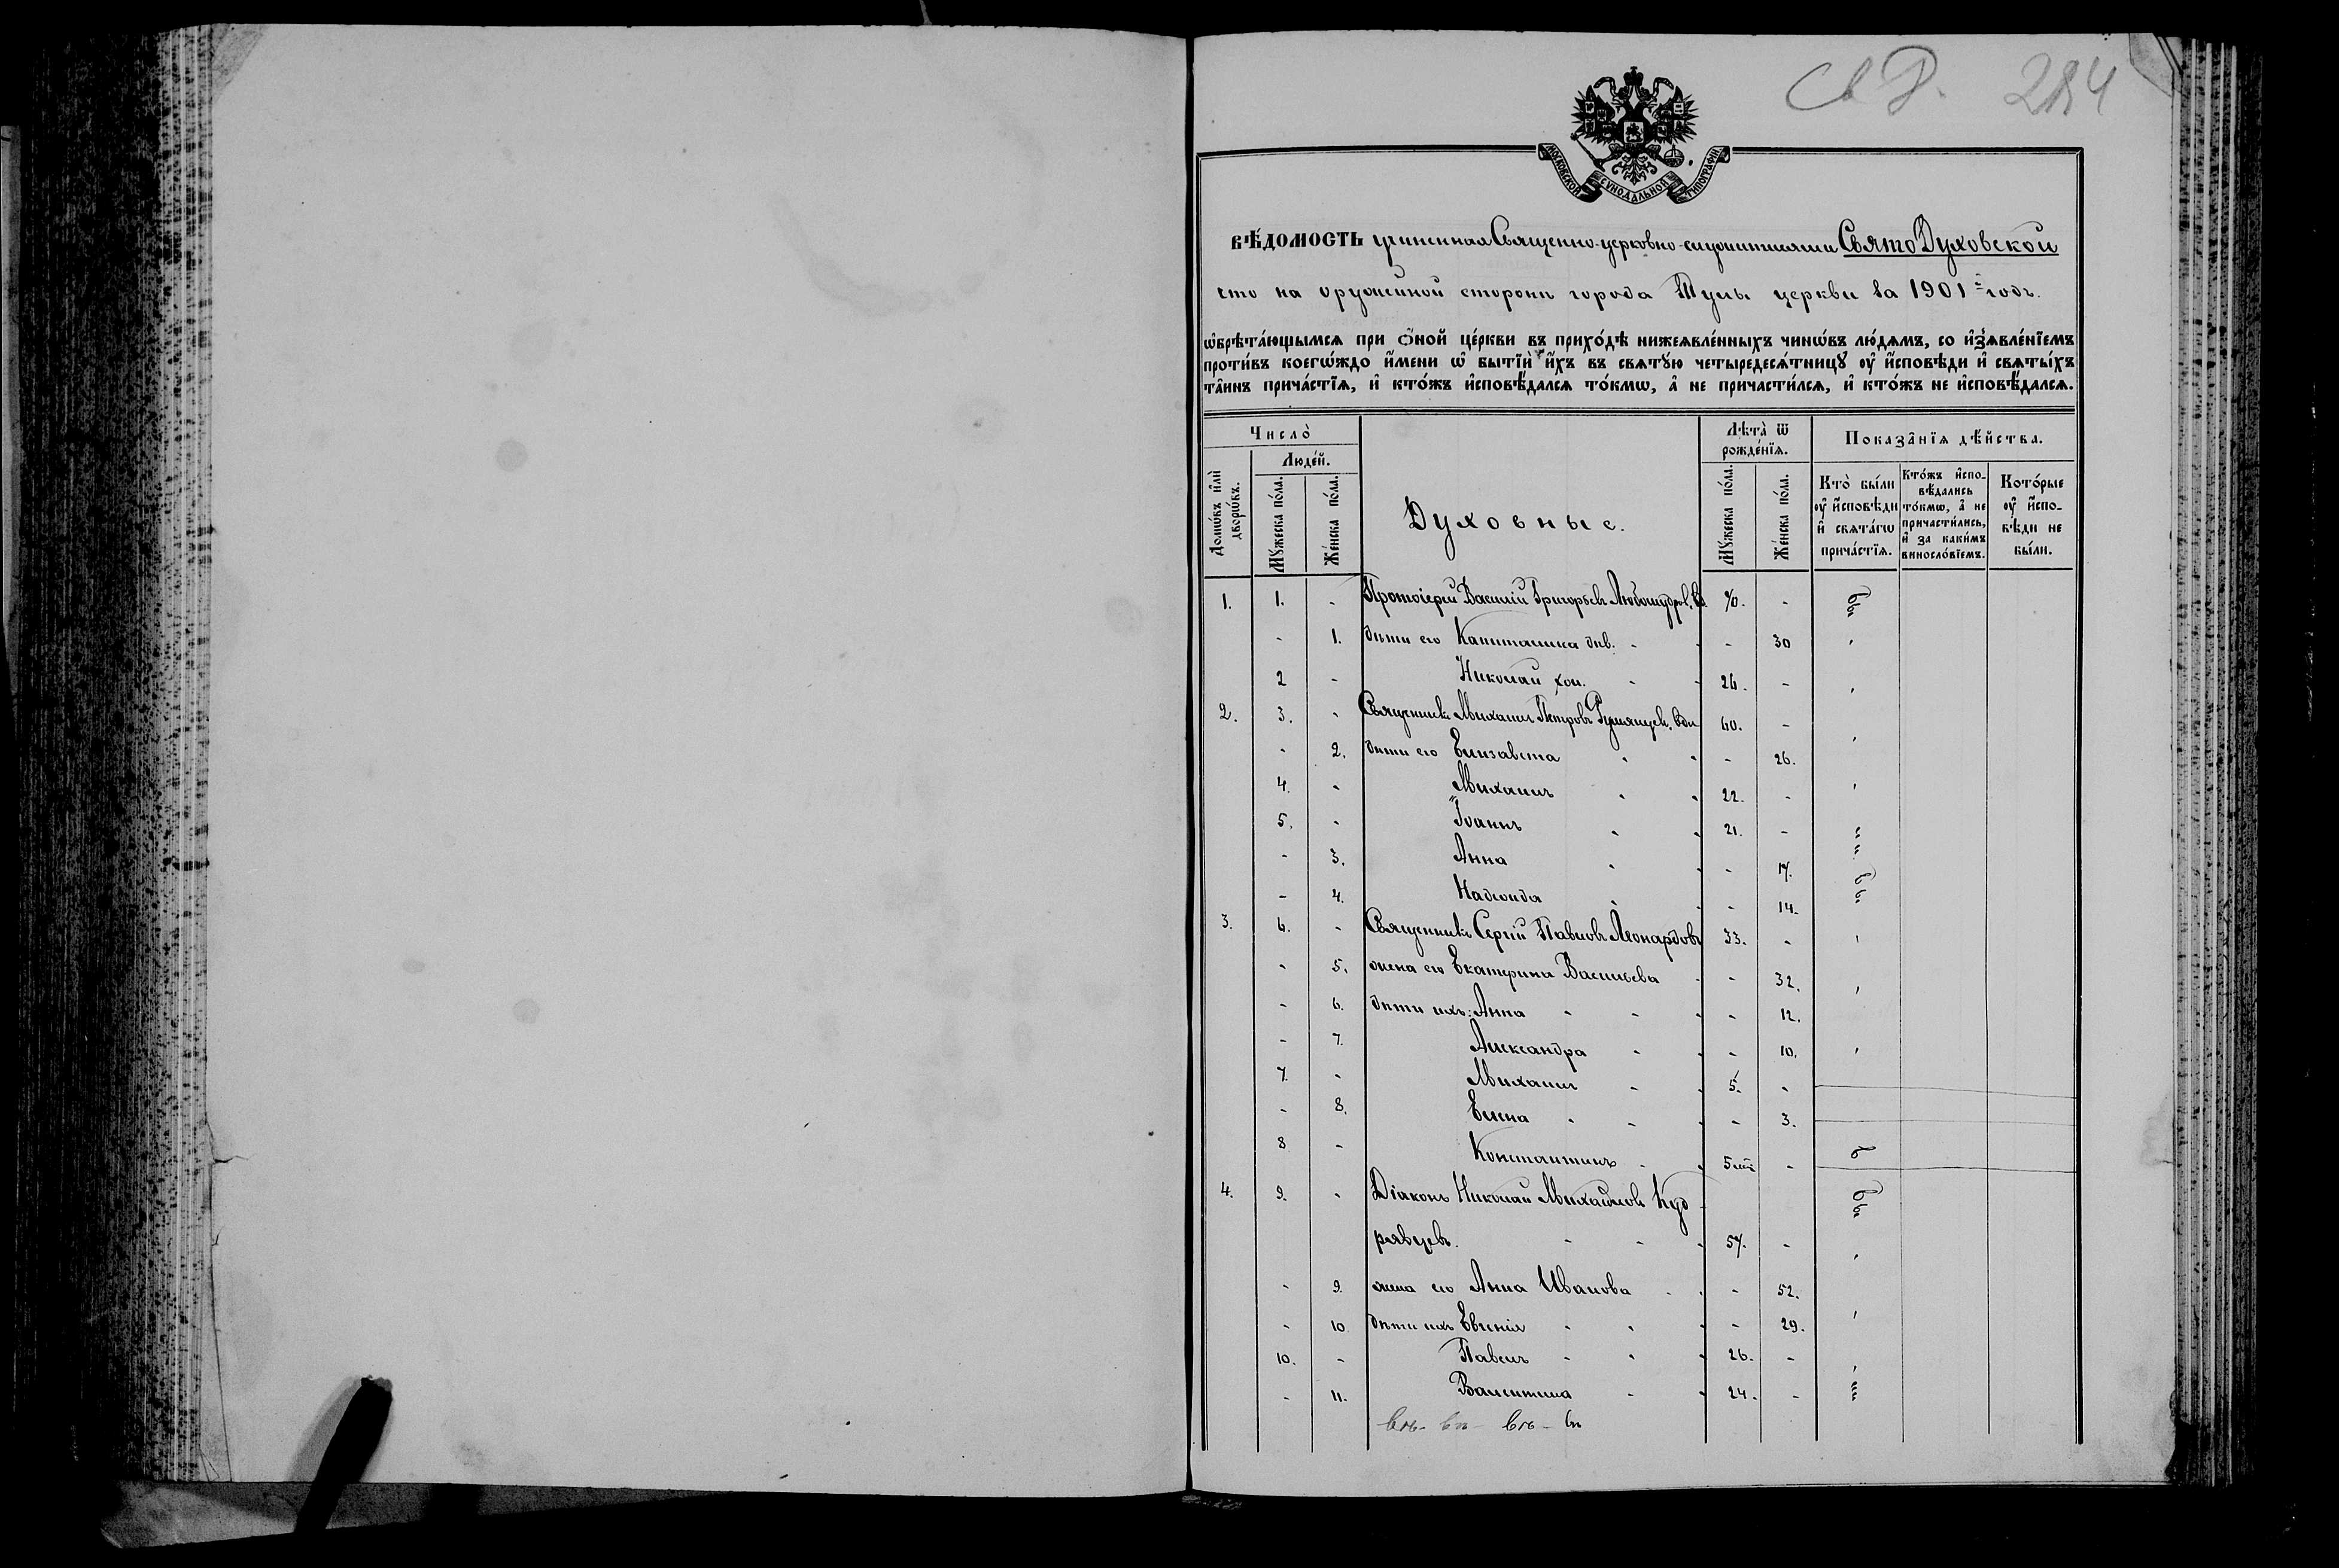 Св. Д. 284
МОСКОВСКОЙ СѴНОДАЛЬНОЙ ТИПОГРАФИИ
ВѢ́ДОМОСТЬ учиненная Священно-церковно-служителями Свято Духовской
что на оружейной сторонѣ города Тулы церкви за 1901 годъ.
ѡ҆брѣта́ющымсѧ при ѻ҆́ной це́ркви въ прихо́дѣ нижеѧвле́нныхъ чинѡ́въ лю́дѧмъ, со и҆з̾ѧвле́нїемъ
проти́въ коегѡ́ждо и҆́мени ѡ҆ бытїѝ и҆́хъ въ свѧтꙋ́ю четыредесѧ́тницꙋ ᲂу҆ и҆́сповѣди и҆ свѧты́хъ
та̂инъ прича́стїѧ, и҆ кто́жъ и҆сповѣ́далсѧ то́кмѡ, а҆ не причасти́лсѧ, и҆ кто́жъ не и҆сповѣ́далсѧ.
Число̀
Люде́й.
Домѡ́въ и҆лѝ дворѡ́въ.
Мꙋ́жеска по́ла.
Же́нска по́ла.
Духовные.
Лѣ́та ѿ рожде́нїѧ.
Мꙋ́жеска по́ла.
Же́нска по́ла.
Показа̂нїѧ дѣ́йства.
Кто̀ бы́ли ᲂу҆ и҆́сповѣди и҆ свѧта́гѡ прича́стїѧ.
Кто́жъ и҆спо-вѣ́дались то́кмѡ, а҆ не причасти́лись, и҆ за каки́мъ винословїемъ.
Кото́рые ᲂу҆ и҆́спо-вѣди не бы́ли.
1. 1. - Протоіерей Василій Григорьевъ Любомудровъ, вд. 70. - бы
- 1. дѣти его Капитолина дѣв. - - - 30
2 - Николай хол. - - 26. -
2. 3. - Священникъ Михаилъ Петровъ Румянцев, вдв 60. -
- 2. дѣти его Елизавета - - - 26.
4. - Михаилъ - - 22. -
5. - Іоаннъ - - 21. -
- 3. Анна - - - 17.
- 4. Надежда - - - 14. бы
3. 6. - Священникъ Сергій Павловъ Леонардовъ 33. -
- 5. жена его Екатерина Васильева - - 32.
- 6. дѣти ихъ: Анна - - - - 12.
- 7. Александра - - - 10.
7. - Михаилъ - - 5. -
- 8. Елена - - - - 3.
8 - Константинъ - - 5 мѣс. - б
4. 9. - Діаконъ Николай Михайловъ Куд- бы
рявцевъ. - - - 57. -
- 9. жена его Анна Иванова - - - 52.
- 10. дѣти ихъ Евгенія - - - - 29.
10. - Павелъ - - - 26. -
- 11. Валентина - - 24. -